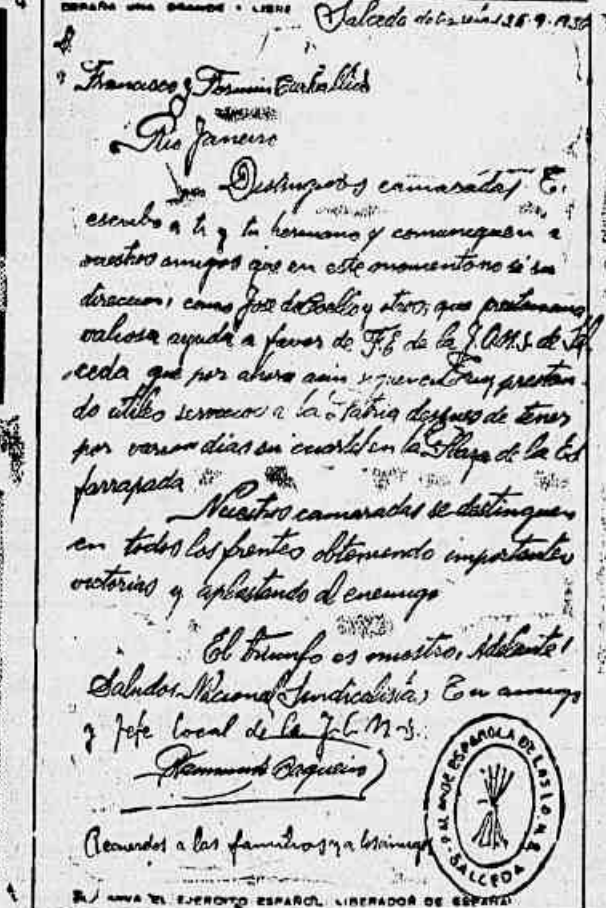 ESPAÑA UNA GRANDE Y LIBRE
Salceda de 25-9-1936
Francisco y Fermin
Rio Janeiro
Distinguidos camaradas:
escribo a ti y tu hermano y comuniquen a
nuestros amigos que en este momento no se su
direccion, como Jose de y otros, que
valiosa ayuda a favor de F.E de la J.O.N.S de Sal
ceda que por ahora aun prestan
do utiles servicios a la Patria despues de tener
por varios dias su cuartel en la Plaza de la Es
farrapada
Nuestros camaradas se destinguen
en todos los frentes obteniendo importantes
victorias y aplastando al enemigo
El triunfo es nuestro, Adelante!
Saludos Nacional Sindicalista, Tu amigo
y Jefe local de la
Baqueiro
Recuerdos a las familias y a los amigos
FALANGE ESPAÑOLA DE LAS J.O.N.S
SALCEDA
VIVA EL EJERCITO ESPAÑOL LIBERADOR DE ESPAÑA!